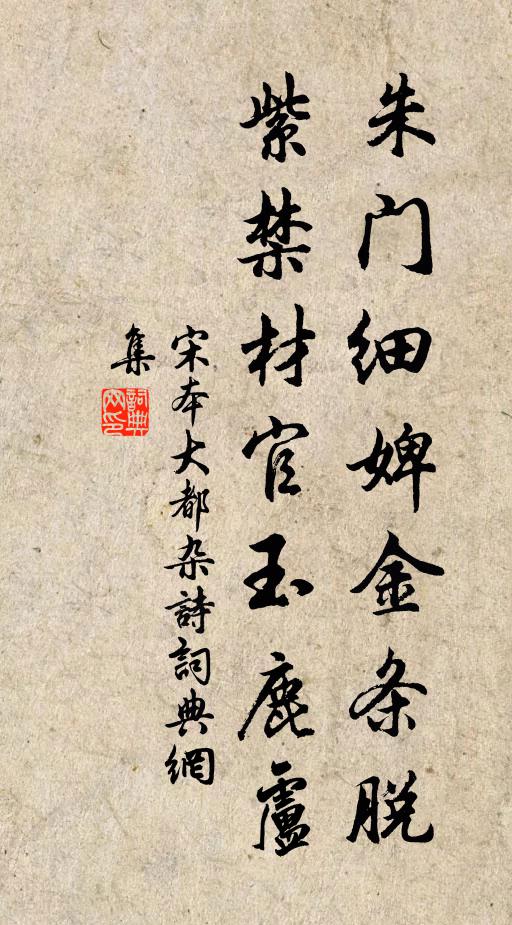 朱门细婢金条脱
紫禁材官玉鹿盧
宋本大都杂詩詞典網
集
詞典
网印